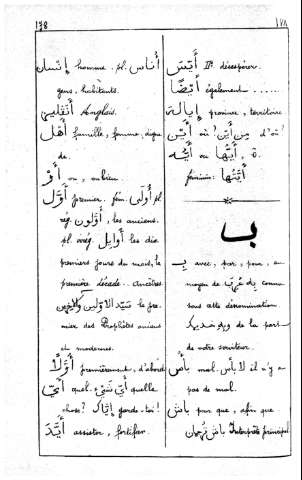 138
١٧٨
إِنْسَان homme. pl. أُنَاس
gens, habitants.
أَنْقْلِيز Anglais.
أَهْل famille, femme, digne
de.
أَوْ ou, ou bien.
أَوَّل premier. fém. أُولَى pl.
rég. أَوَّلُون, les anciens.
pl. irrég. أَوَايِل les dix
premiers jours du mois, la
première décade. Ancêtres
سَيّد الاوّلين والاخرين le pre-
mier des Prophètes anciens
et modernes.
أَوَّلًا premièrement, d'abord
أَيّ quel. أَيّ شَيْء quelle
chose? إِيَّاكَ garde-toi!
أَيَّدَ assister, fortifier.
أَيَّسَ II. désespérer.
أَيْضًا également ......
إِيَالَة province, territoire
أَيْن où? مِن أَيْن d'où?
أَيُّهَا ou أَيُّه ô.
féminin: أَيَّتُهَا
ب
بِ avec, par, pour, au
moyen de
sous cette dénomination
de la part
de notre serviteur.
بَأْس mal. لا بأس il n'y a
pas de mal.
بَاش pour que, afin que
بَاش تَرْجُمَان Interprète principal